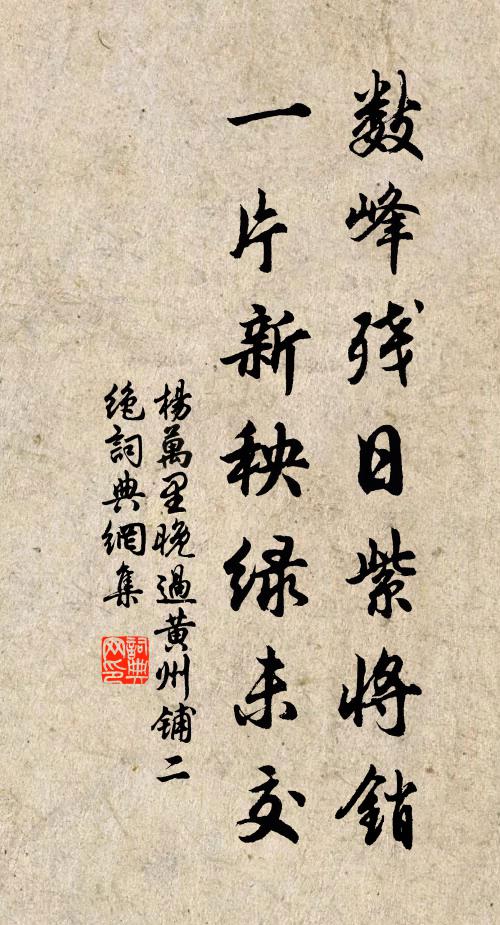 数峰残日紫将销
一片新秧绿未交
楊萬里晚過黄州铺二
绝詞典網集
詞典
网印